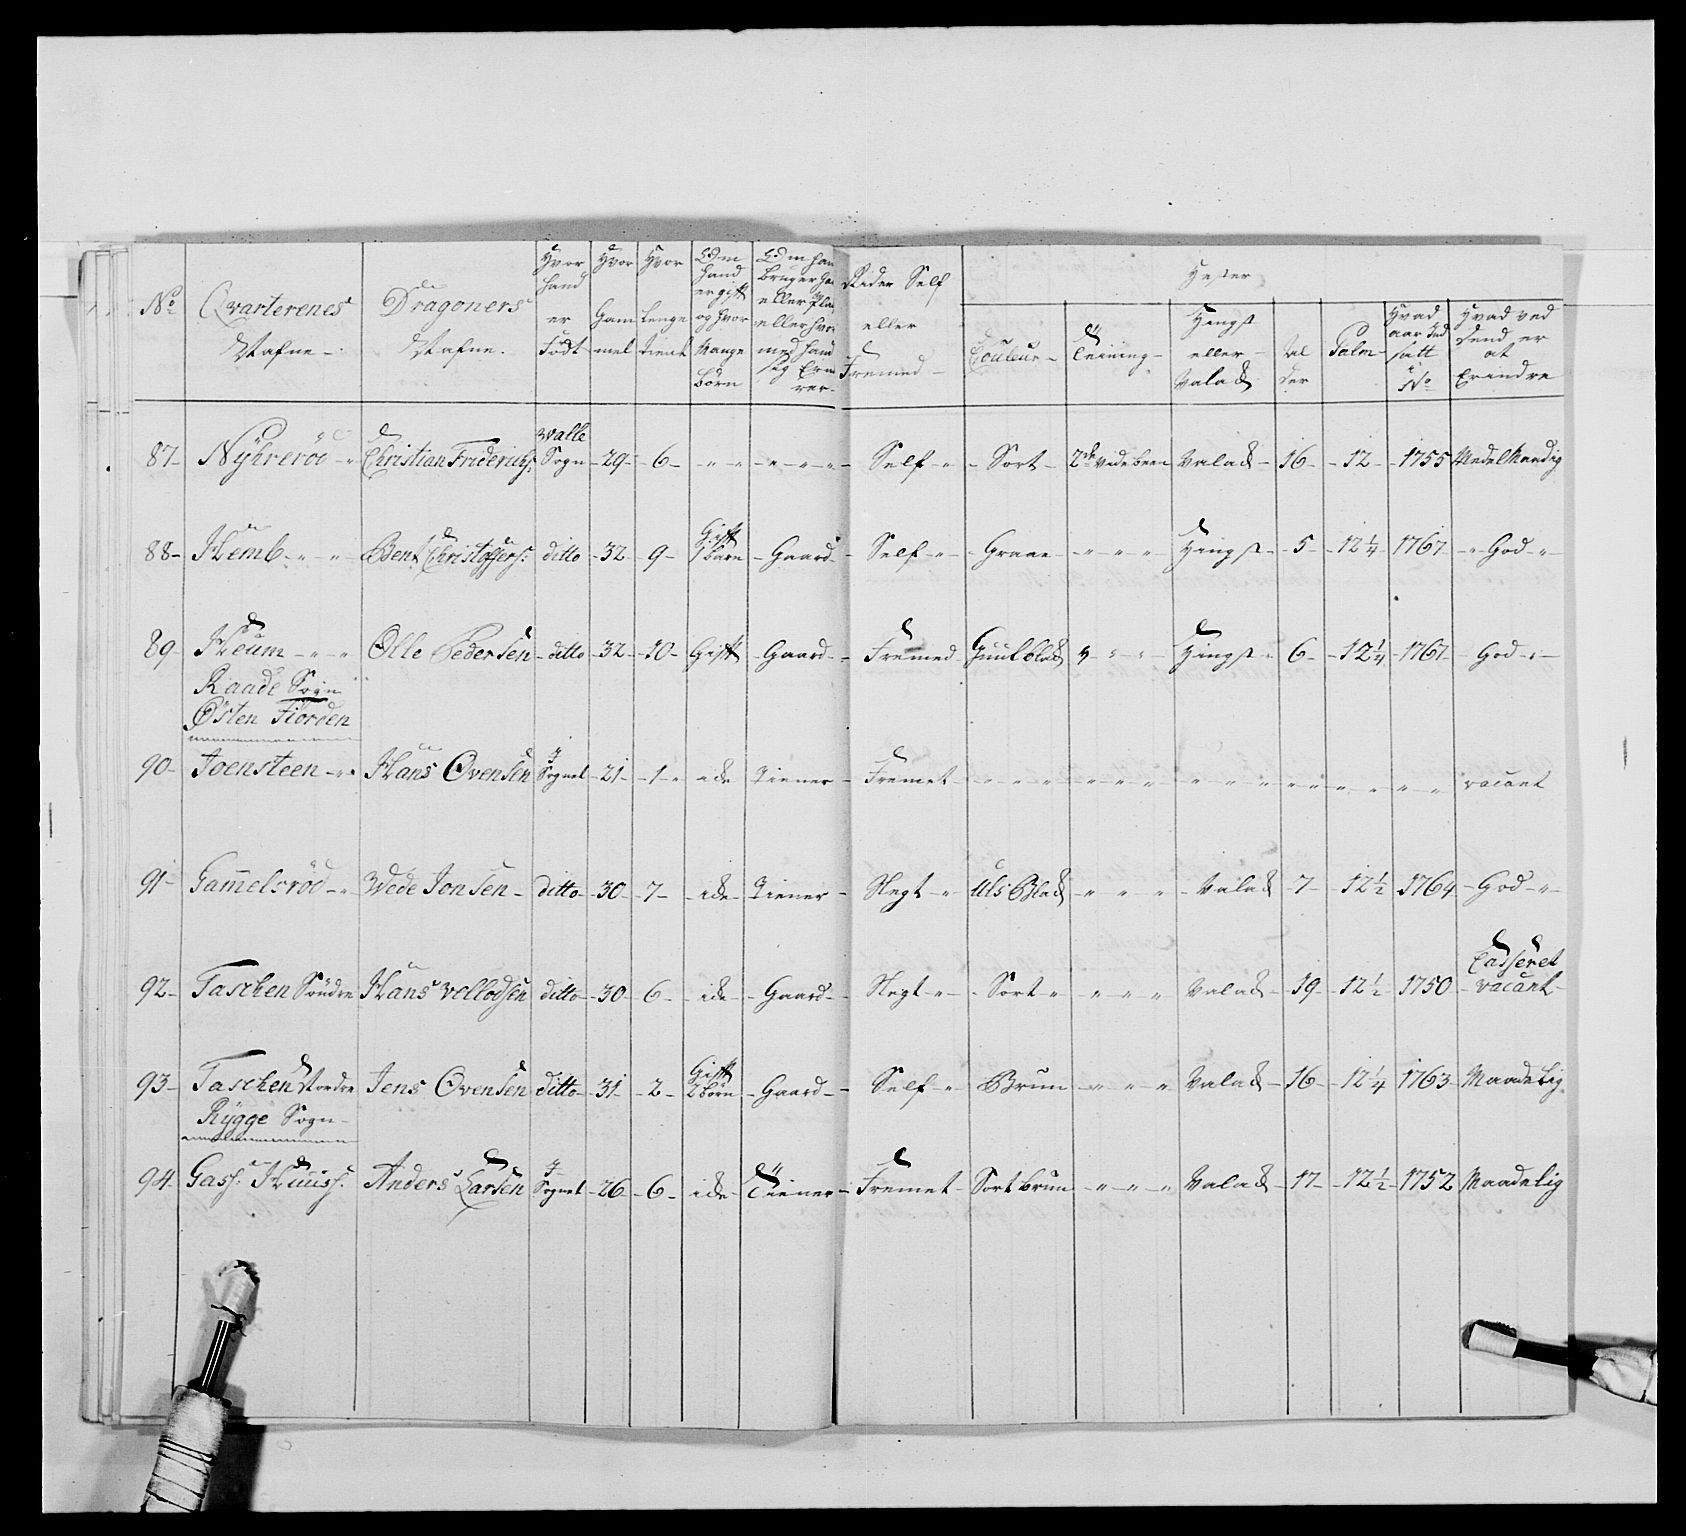 No | Qvarterenes Nafne | Dragoners Nafne | Hvor hand er Födt | Hvor Gammel | Hvor lenge tient | Om hand er gift og hvor Mange Börn | Om han Bruger eller eller hvor med hand sig Ernærer | Rider Self eller Fremed | Hester: Couleur | Teining | Hingst eller Valack | Alder | Palm | Hvad aar Indsatt i No | Hvad ved dend er at Erindre
87 | Nÿhreröd | Christian Friderichs: | Walle Sogn | 29 | 6 | " " | " " " | Self | Sort | 2de videbeen | Valack | 16 | 12 | 1755 | Medelmaadig
88 | Hemb | Bent Christophers: | ditto | 32 | 9 | Gift 1 barn | Gaard | Self | Graae | " " " | Hingst | 5 | 12 1/4 | 1767 | God
89 | Heum | Olle Pedersen | ditto | 32 | 10 | Gift | Gaard | Fremed | Guulblack | " " | Hingst | 6 | 12 1/4 | 1767 | God
Raade Sogn
Østen Fiorden
90 | Joensteen | Hans Ovensen | I Sognet | 21 | 1 | icke | Tiener | Fremet | " " " | " " " | " " " | " " | " " | " " | vacant
91 | Gam̄elsröd | Wede Jonsen | ditto | 30 | 7 | icke | Tiener | Negt | Uls Black | " " " | Valack | 7 | 12 1/2 | 1764 | God
92 | Taschen Söndre | Hans Vellodsen | ditto | 30 | 6 | icke | Gaard | Negt | Sort | " " " | Valack | 19 | 12 1/2 | 1750 | Casseret vacant
93 | Taschen Nordre | Jens Ovensen | ditto | 31 | 2 | Gift 2 börn | Gaard | Self | Brun | " " " | Valack | 16 | 12 1/4 | 1763 | Maadelig
Rÿgge Sogn
94 | Gass: Huuss: | Anders Larsen | I Sognet | 26 | 6 | icke | Tiener | Fremet | Sortbrun | " " " | Valack | 17 | 12 1/2 | 1752 | Maadelig